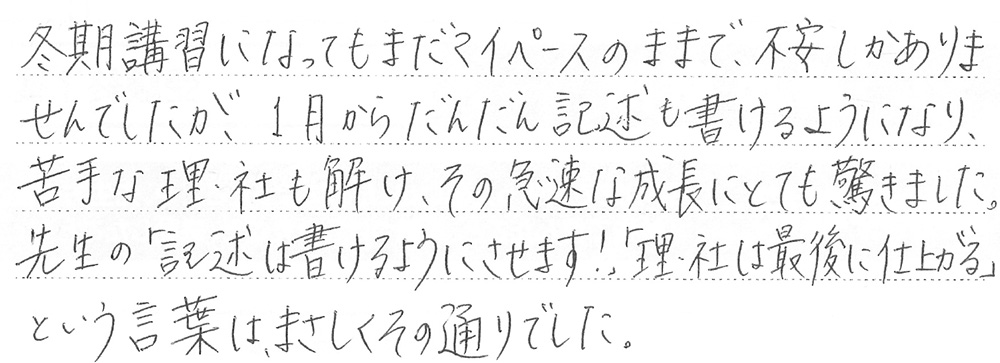 冬期講習になってもまだマイペースのままで、不安しかありま
せんでしたが、1月からだんだん記述も書けるようになり、
苦手な理・社も解け、その急速な成長にとても驚きました。
先生の「記述は書けるようにさせます!」「理・社は最後に仕上がる」
という言葉は、まさしくその通りでした。